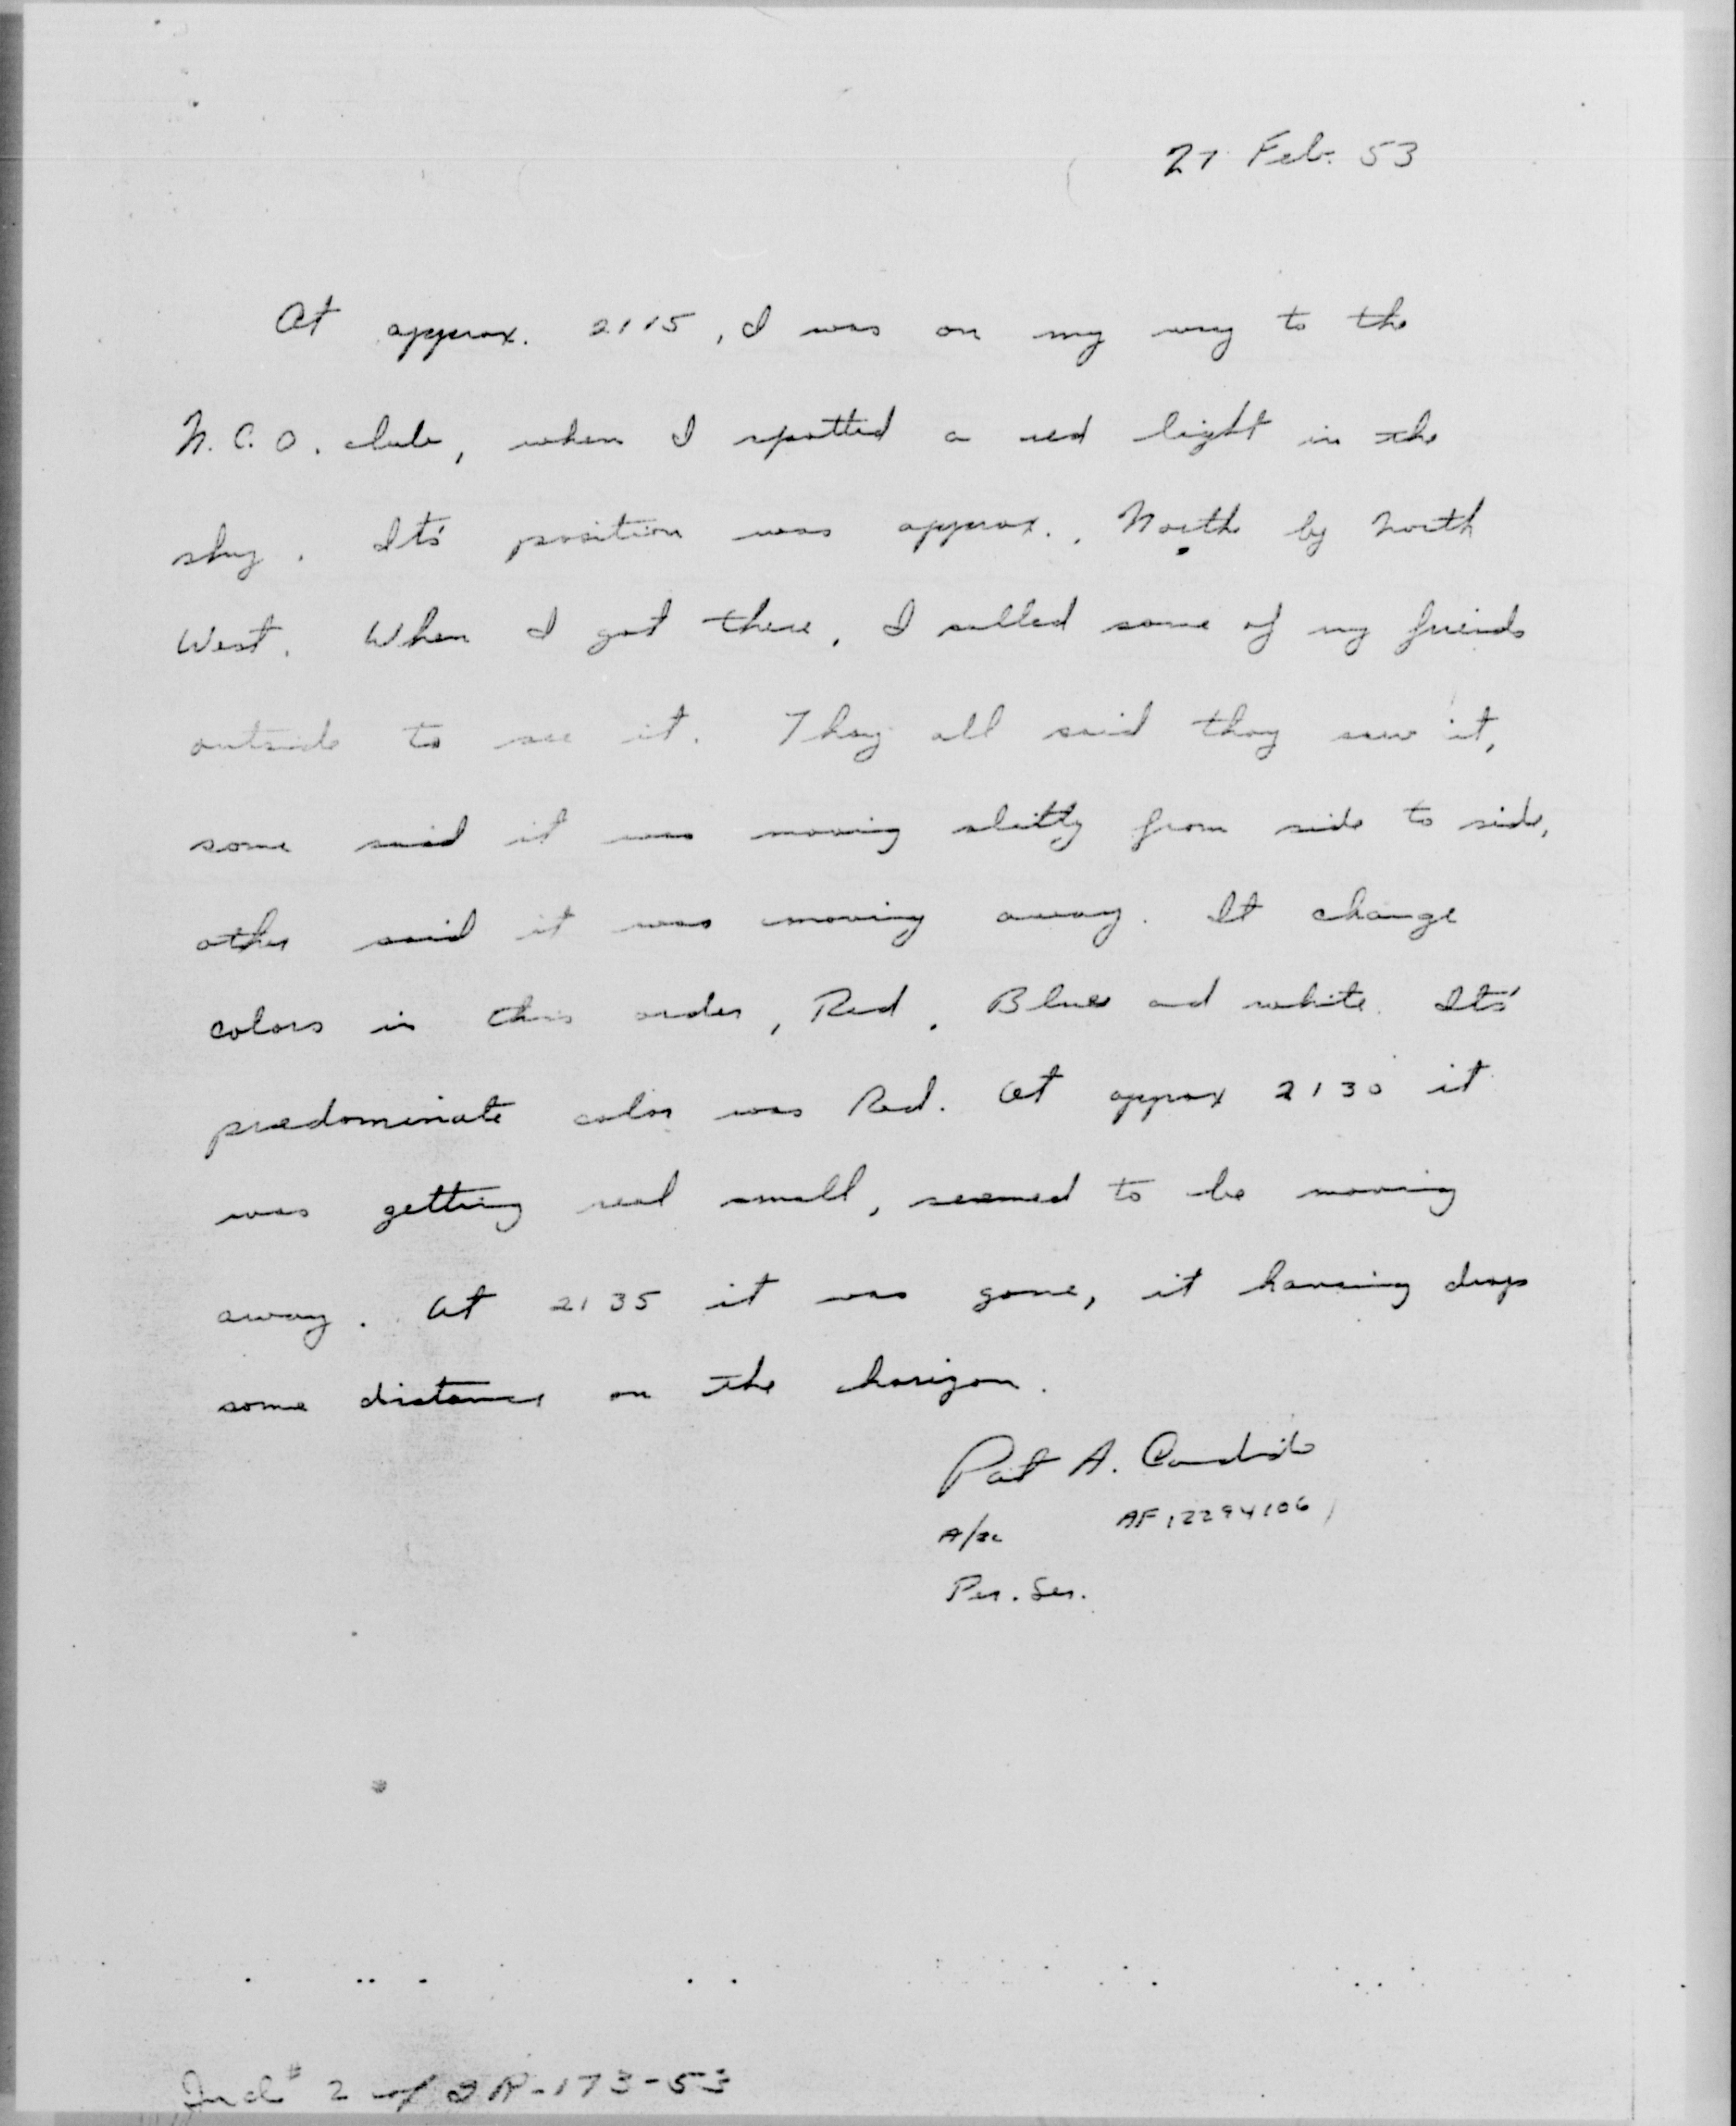 27 Feb. 53
At approx. 2115, I was on my way to the
N.C.O. club, when I spotted a red light in the
sky. It's position was approx.. North by North
West. When I got there, I called some of my friends
outside to see it. They all said they saw it,
some said it was moving slitty from side to side,
other said it was moving away. It change
colors in this order, Red, Blue and white. It's
predominate color was Red. At approx 2130 it
was getting real small, seemed to be moving
away. At 2135 it was gone, it having drop
some distance on the horizon.
Pat A. Candido
A/2c AF 12294106
Per. Ser.
Incl # 2 of IR-173-53